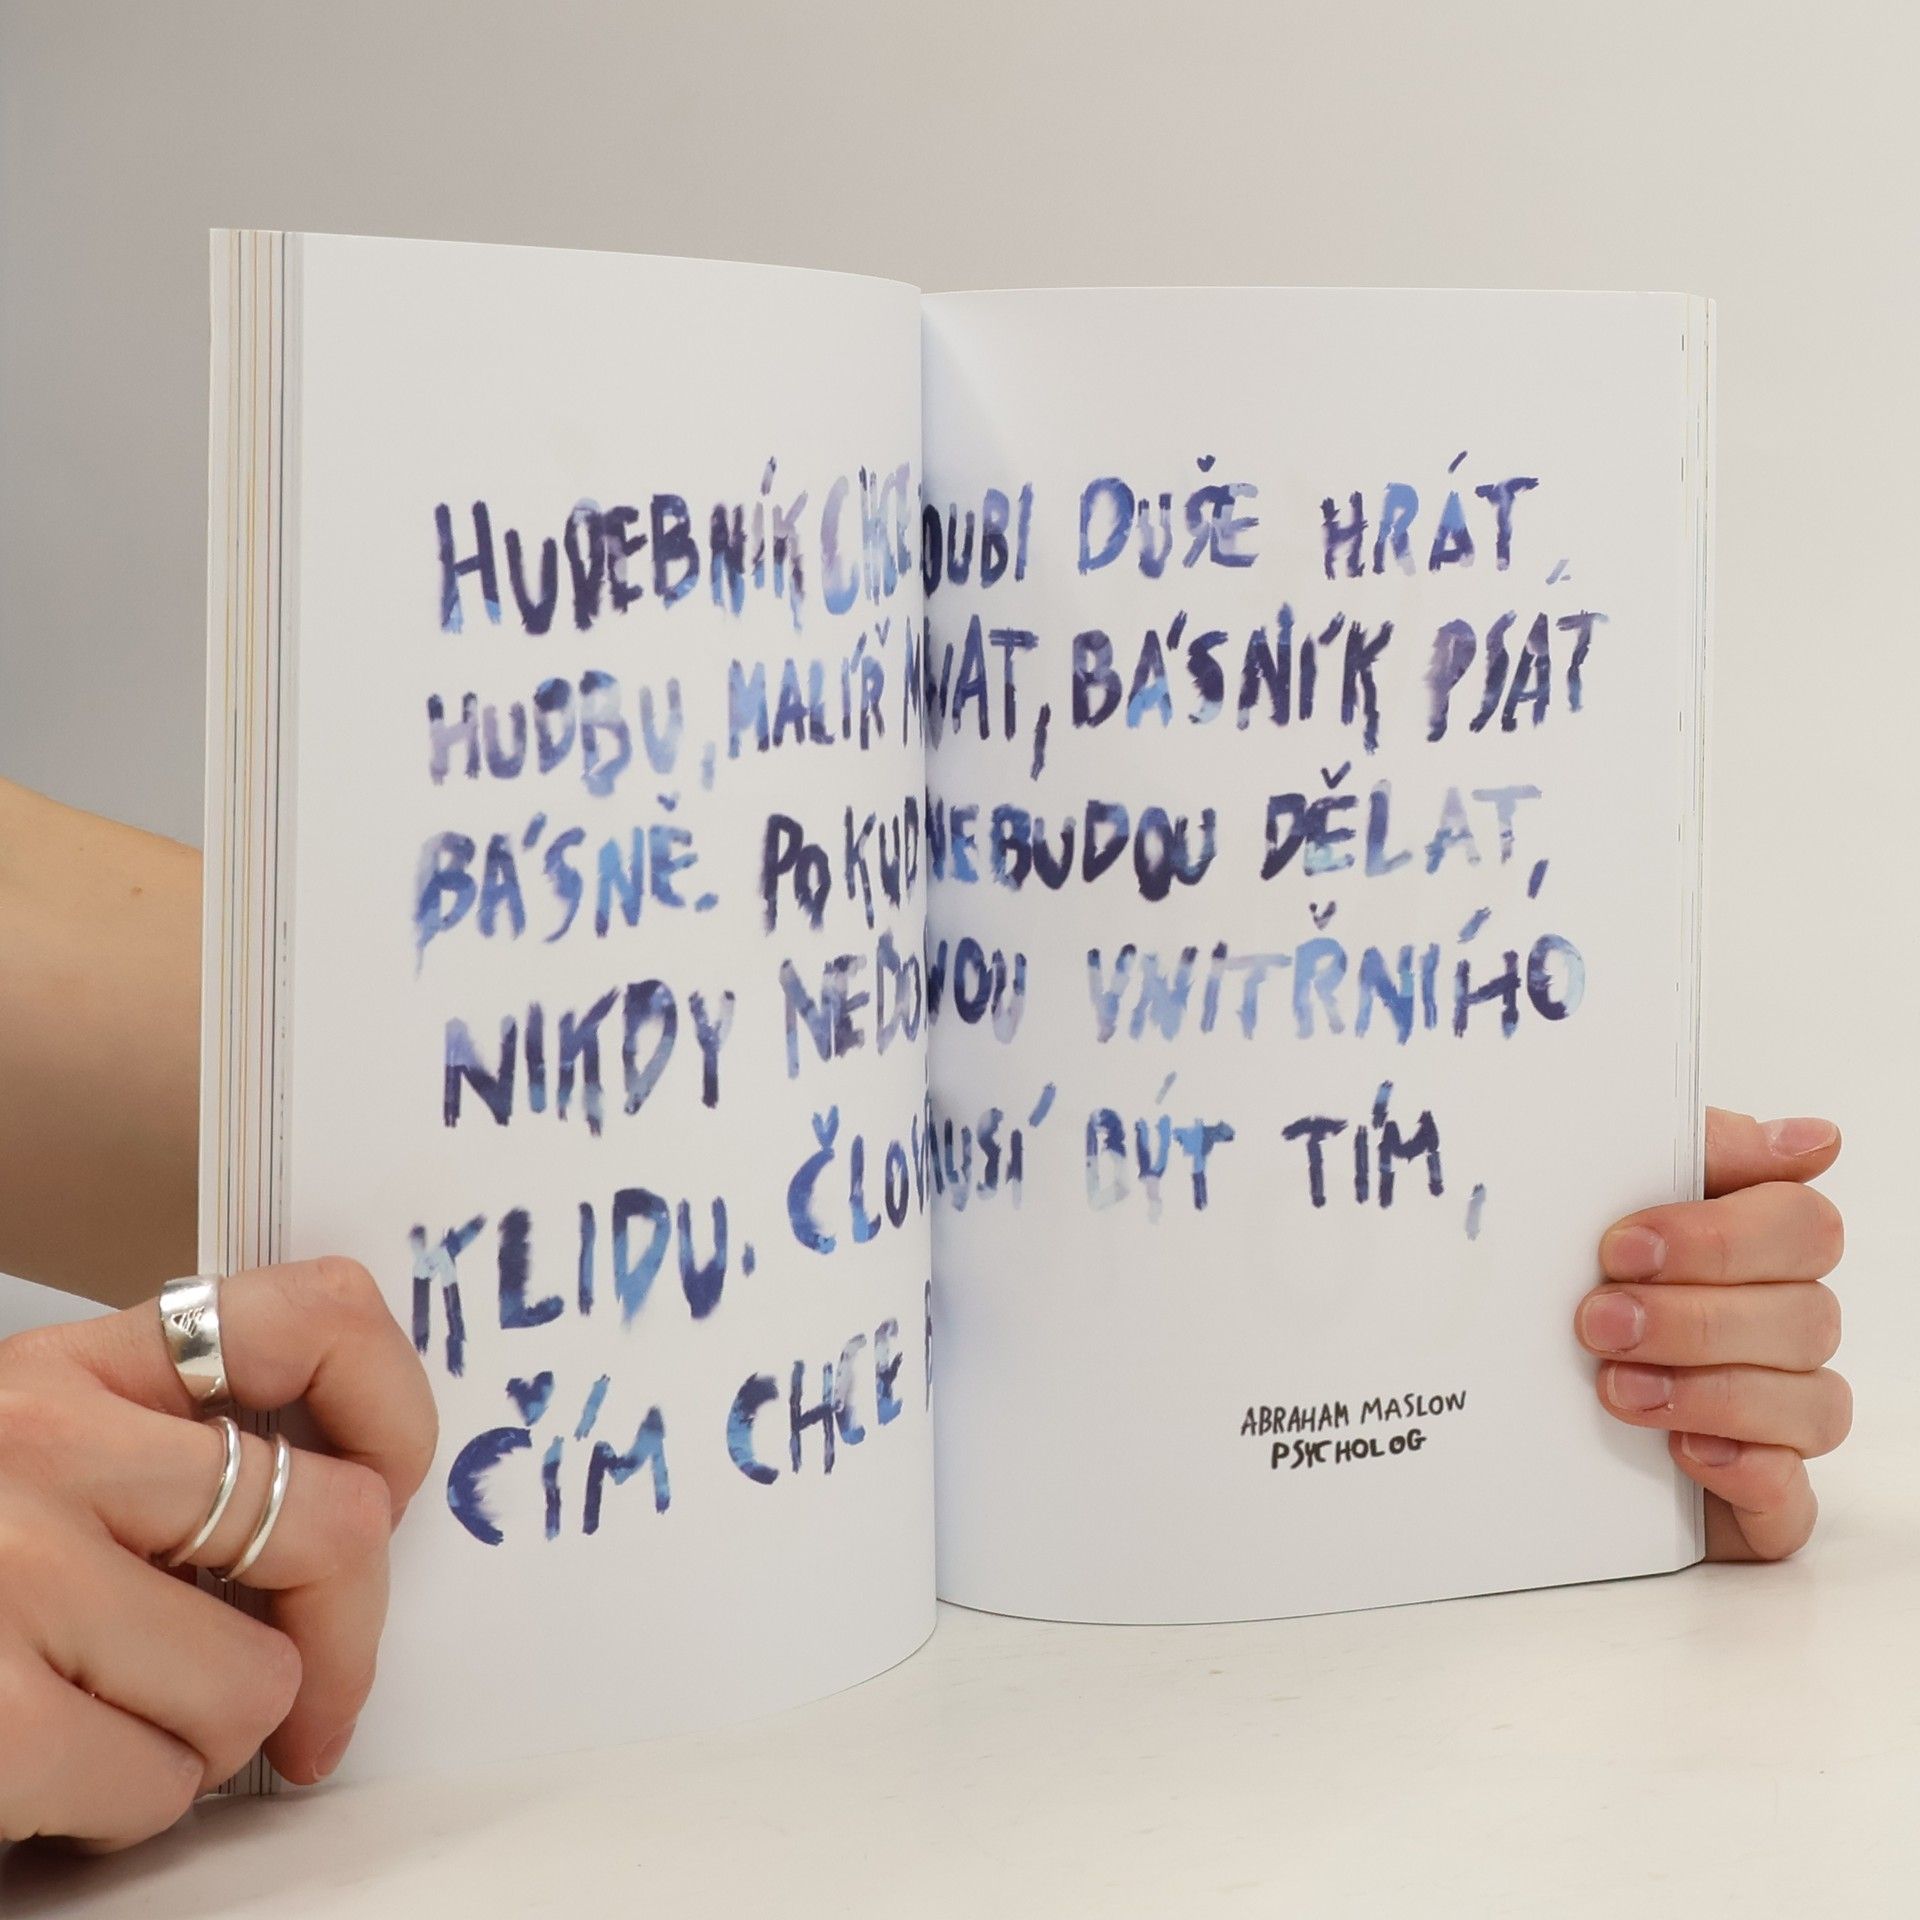 HUDEBNÍK CHCE OUBI DUŠE HRÁT,
HUDBU, MALÍŘ M VAT, BÁSNÍK PSÁT
BÁSNĚ. POKUD NEBUDOU DĚLAT,
NIKDY NEDO NOU VNITŘNÍHO
KLIDU. ČLOV USÍ BÝT TÍM,
ČÍM CHCE
ABRAHAM MASLOW
PSYCHOLOG